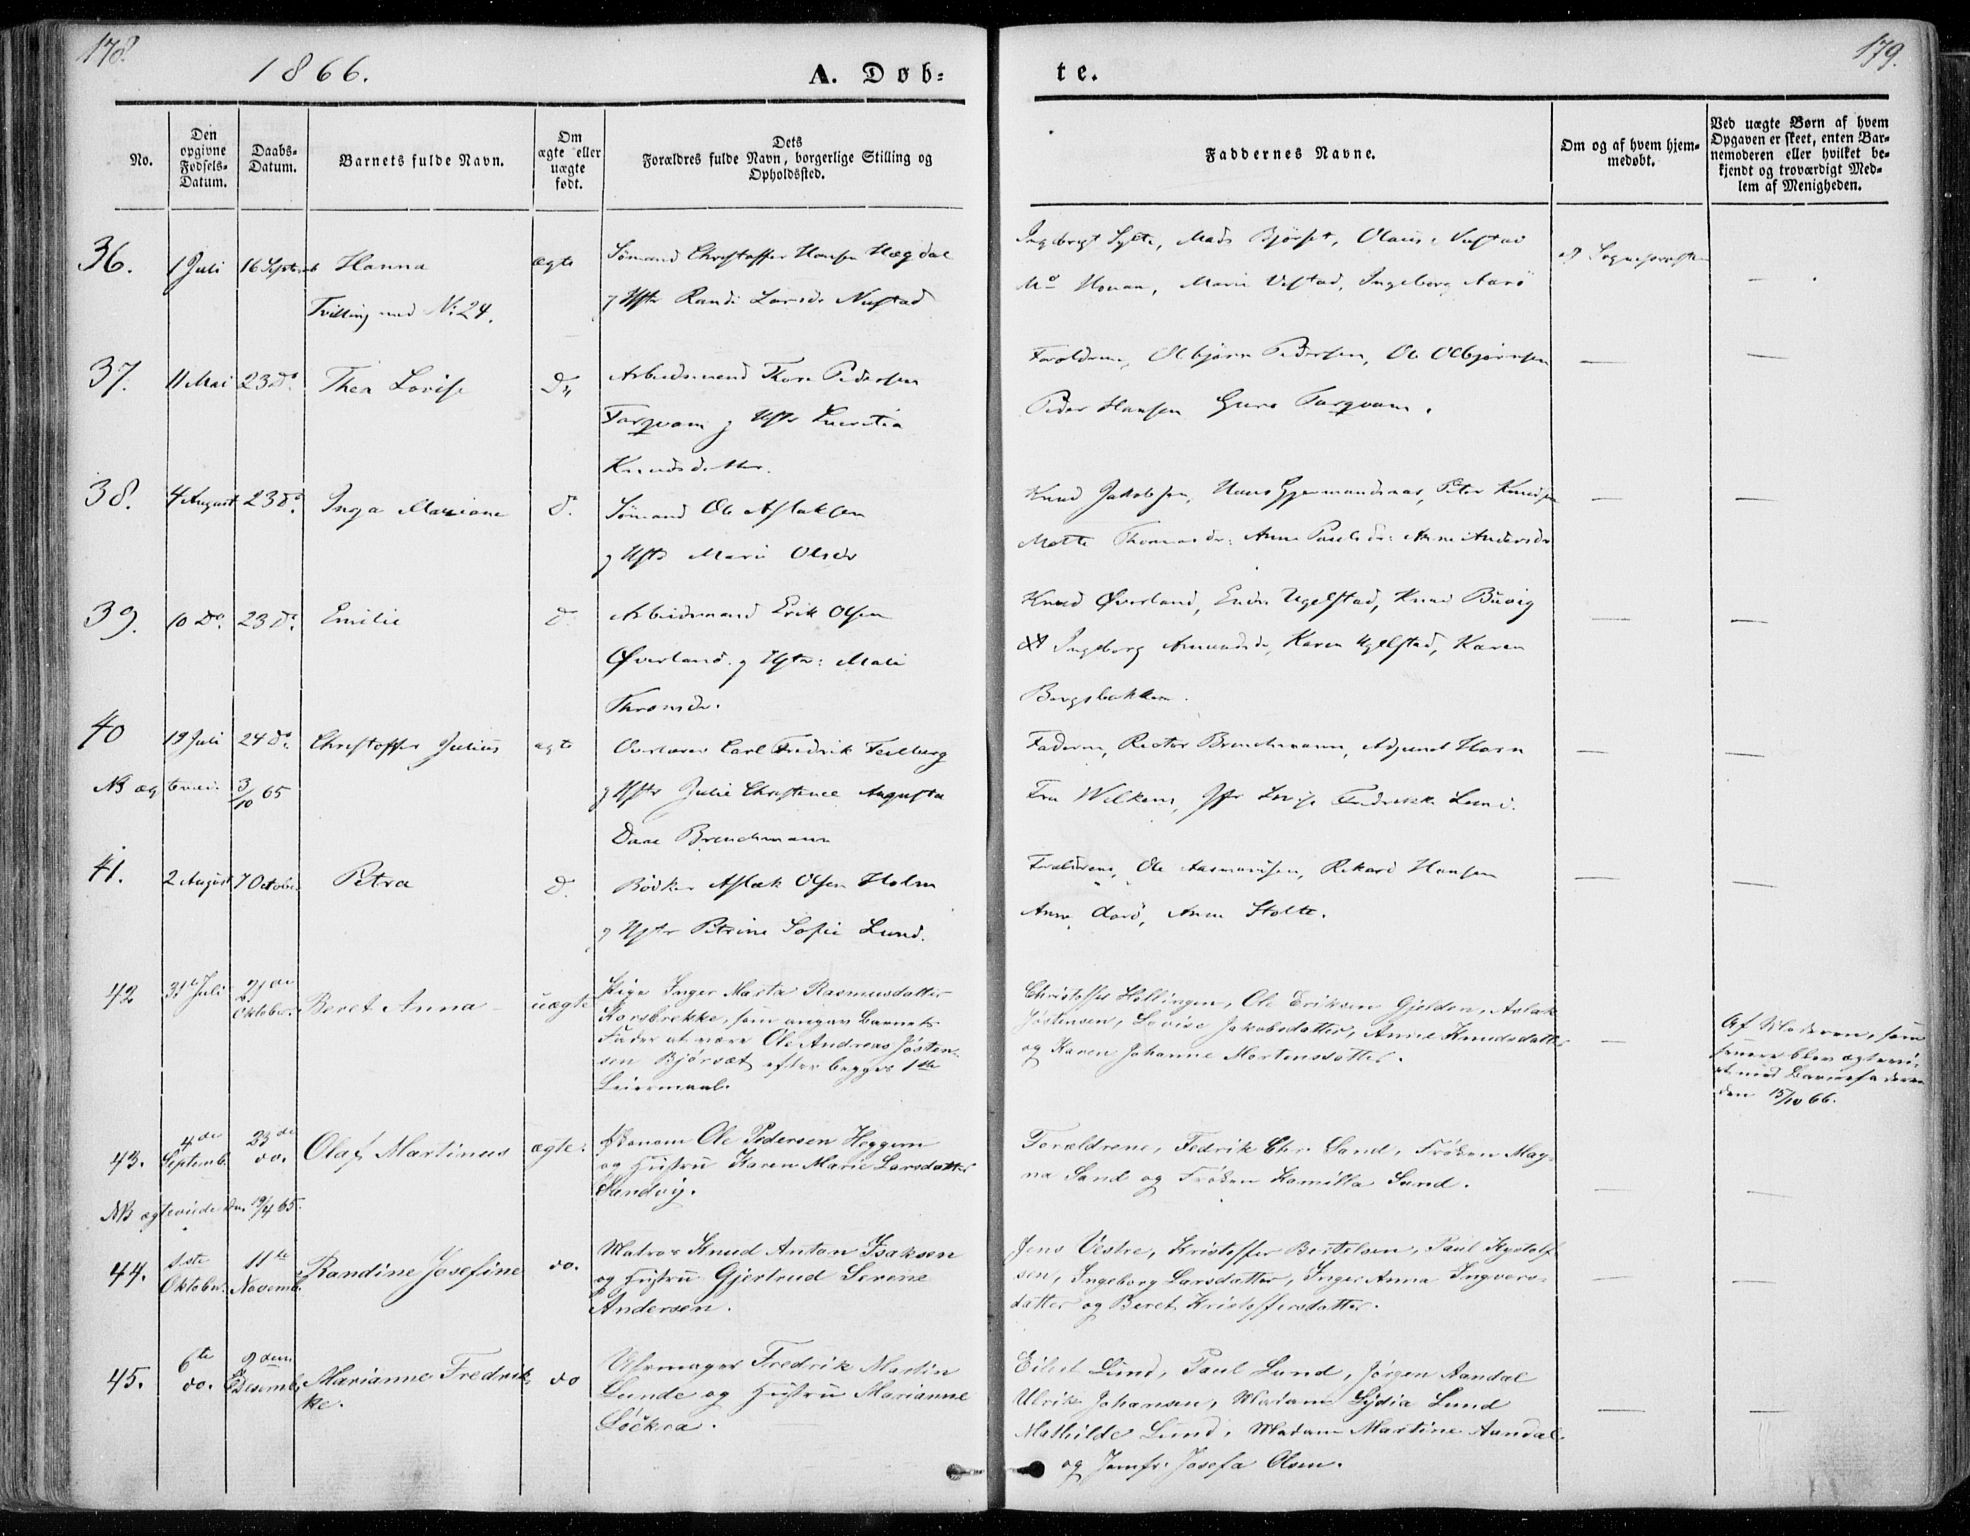 178.
1866.
A. Døb-
te.
179.
No.
Den opgivne Fødsels-Datum.
Daabs-Datum.
Barnets fulde Navn.
Om ægte eller uægte født.
Dets Forældres fulde Navn, borgerlige Stilling og Opholdssted.
Faddernes Navne.
Om og af hvem hjem-medøbt.
Ved uægte Børn af hvem Opgaven er skeet, enten Bar-nemoderen eller hvilket be-kjendt og troværdigt Med-lem af Menigheden.
36. 1 Juli 16 Septemb Hanna ægte Sømand Christoffer Hansen Hægdal
Tvilling med No 24. g Hstr Randi Larsdr Nustad
Ingebrigt Sylte, Mads Bjørset, Olaus Nustad
Mo Honan, Marie Vestad, Ingeborg Aarø
af Sogneprøsten
37. 11 Mai 23 Do. Thea Lovise Do Arbeidsmand Thore Pedersen
Torqvam g Hstr Lucretia
Knudsdatter.
Forældrene, Olbjørn Pedersen, Ole Olbjørnsen
Peder Hansen Guro Torqvam.
38. 4 August 23 Do. Inga Mariane d. Sømand Ole Aslaksen
g Hstr Marie Olsdr
Knud Jakobsen, Hans Peter Knudsen
Mette Thomasdr: Anne Paulsdr: Anne Andersdr
39. 10 Do. 23 Do. Emilie d. Arbeidsmand Erik Olsen
Øverland. g Hstr: Mali
Thronsdr.
Knud Øverland, Endre Ugelstad, Knud Buvig
Ingeborg Amundsdr, Karen Ugelstad, Karen
Bergsbakken.
40 19 Juli 24 Do. Christoffer Julius ægte Overlærer Carl Fredrik Feilberg
NB ægtevi. 3/10 65 g Hstr Julie Christence Augusta
Daae Brinchmann
Faderen, Rector Brinchmann, Adjunct Horn
Fru Wilkens, Jfr Lovise Fredrikke Lund.
41. 2 August 7 Octobr. Petra d. Bødker Aslak Olsen Holm
g Hstr Petrine Sofie Lund.
Forældrene, Ole Aasmundsen, Rikard Hansen
Anne Aarø, Anne Stolte.
42 31te Juli 21de Oktober. Beret Anna uægte Pige Inger Marta Rasmusdatter
Korsbrekke, som angav Barnets
Fader at være Ole Andreas Josten-
sen Bjørsæt efter begges 1ste
Leiermaal.
Christoffer Hollingen, Ole Eriksen Gjelden, Aslak
Jostensen, Lovise Jakobsdatter, Anne Knudsdatter
og Karen Johanne Mortensdatter.
Af Moderen, som
senere blev ægtevi-
et med Barnefaderen
den 15/10 66.
43. 4de Septemb. 23de do. Olaf Martinus ægte: Økonom Ole Pedersen Heggem
og Hustru Karen Marie Larsdatter
Sandvig.
NB ægteviede den 19/4 65.
Forældrene, Fedrik Chr. Sand, Frøken Mag-
na Sand og Frøken Kamilla Sand.
44. 1ste Oktober. 11te Novemb. Randine Josefine do. Matros Knud Anton Isaksen
og Hustru Gjertrud Serene
Andersen.
Jens Vestre, Kristoffer Bertelsen, Paul Kystolf-
sen, Ingeborg Larsdatter, Inger Anna Ingvars-
datter og Beret Kristoffersdatter.
45. 6te do. 9den Desemb. Marianne Fredrik-
ke. do Uhrmager Fredrik Martin
Lunde og Hustru Marianne
Løckra.
Eilert Lund, Paul Lund, Jørgen Aandal
Ulrik Johansen, Madam Lydia Lund
Mathilde Lund, Madam Martine Aandal
og Jomfr. Josefa Olsen.